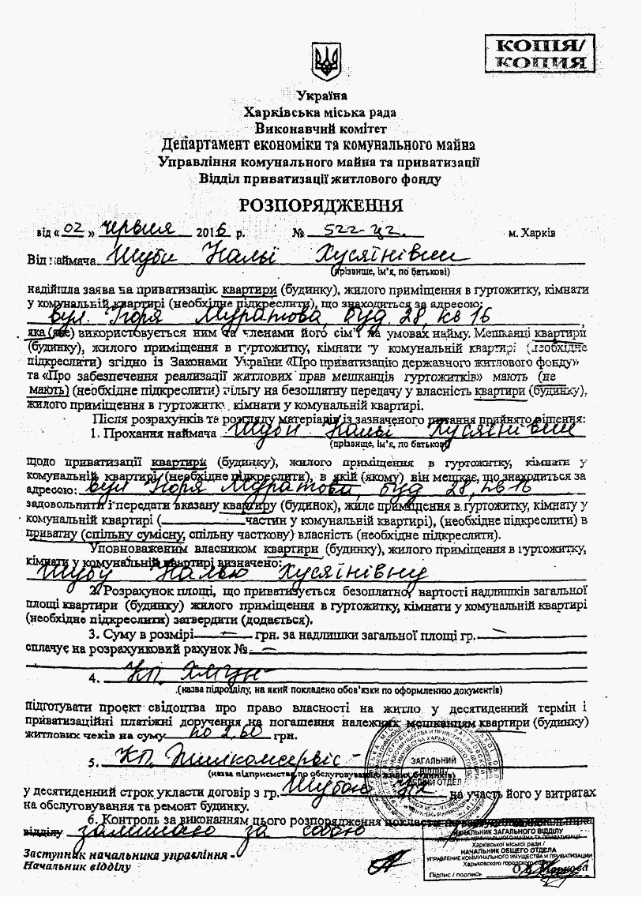 КОПІЯ/
КОПИЯ
Україна
Харківська міська рада
Виконавчий комітет
Департамент економіки та комунального майна
Управління комунального майна та приватизації
Відділ приватизації житлового фонду
РОЗПОРЯДЖЕННЯ
від « 02 » червня 2016 р. № 522-цг. м. Харків
Від наймача Шуби Нальї Хусяінівни
(прізвище, ім'я, по батькові)
надійшла заява на приватизацію квартири (будинку), жилого приміщення в гуртожитку, кімнати
у комунальній квартирі (необхідне підкреслити), що знаходиться за адресою:
вул. Ігоря Муратова буд. 28, кв 16
яка (яке) використовується ним та членами його сім'ї на умовах найму. Мешканці квартири
(будинку), жилого приміщення в гуртожитку, кімнати у комунальній квартирі (необхідне
підкреслити) згідно із Законами України «Про приватизацію державного житлового фонду»
та «Про забезпечення реалізації житлових прав мешканців гуртожитків» мають (не
мають) (необхідне підкреслити) пільгу на безоплатну передачу у власність квартири (будинку),
жилого приміщення в гуртожитку, кімнати у комунальній квартирі.
Після розрахунків та розгляду матеріалів із зазначеного питання прийнято рішення:
1. Прохання наймача Шуби Нальї Хусяінівни
(прізвище, ім'я, по батькові)
щодо приватизації квартири (будинку), жилого приміщення в гуртожитку, кімнати у
комунальній квартирі (необхідне підкреслити), в якій (якому) він мешкає, що знаходиться за
адресою: вул Ігоря Муратова, буд 28, кв 16
задовольнити і передати вказану квартиру (будинок), жиле приміщення в гуртожитку, кімнату у
комунальній квартирі ( частин у комунальній квартирі), (необхідне підкреслити) в
приватну (спільну сумісну, спільну часткову) власність (необхідне підкреслити).
Уповноваженим власником квартири (будинку), жилого приміщення в гуртожитку,
кімнати у комунальній квартирі визначено:
Шубу Налью Хусяінівну
2. Розрахунок площі, що приватизується безоплатно, вартості надлишків загальної
площі квартири (будинку) жилого приміщення в гуртожитку, кімнати у комунальній квартирі
(необхідне підкреслити) затвердити (додається).
3. Суму в розмірі — грн. за надлишки загальної площі гр. —
сплачує на розрахунковий рахунок № —
4.
(назва підрозділу, на який покладено обов'язки по оформленню документів)
підготувати проект свідоцтва про право власності на житло у десятиденний термін і
приватизаційні платіжні доручення на погашення належних мешканцям квартири (будинку)
житлових чеків на суму по 2,60 грн.
5. КП Жилкомсервіс
(назва підприємства по обслуговуванню жилих будинків)
у десятиденний строк укласти договір з гр. Шубою на участь його у витратах
на обслуговування та ремонт будинку.
6. Контроль за виконанням цього розпорядження покласти на
відділу залишаю за собою
Заступник начальника управління -
Начальник відділу
ЗАГАЛЬНИЙ
ВІДДІЛ
ОБЩИЙ ОТДЕЛ
НАЧАЛЬНИК ЗАГАЛЬНОГО ВІДДІЛУ
Харківської міської ради /
НАЧАЛЬНИК ОБЩЕГО ОТДЕЛА
УПРАВЛЕНИЕ КОММУНАЛЬНОГО ИМУЩЕСТВА И ПРИВАТИЗАЦИИ
Харьковского городского совета
Підпис / подпись